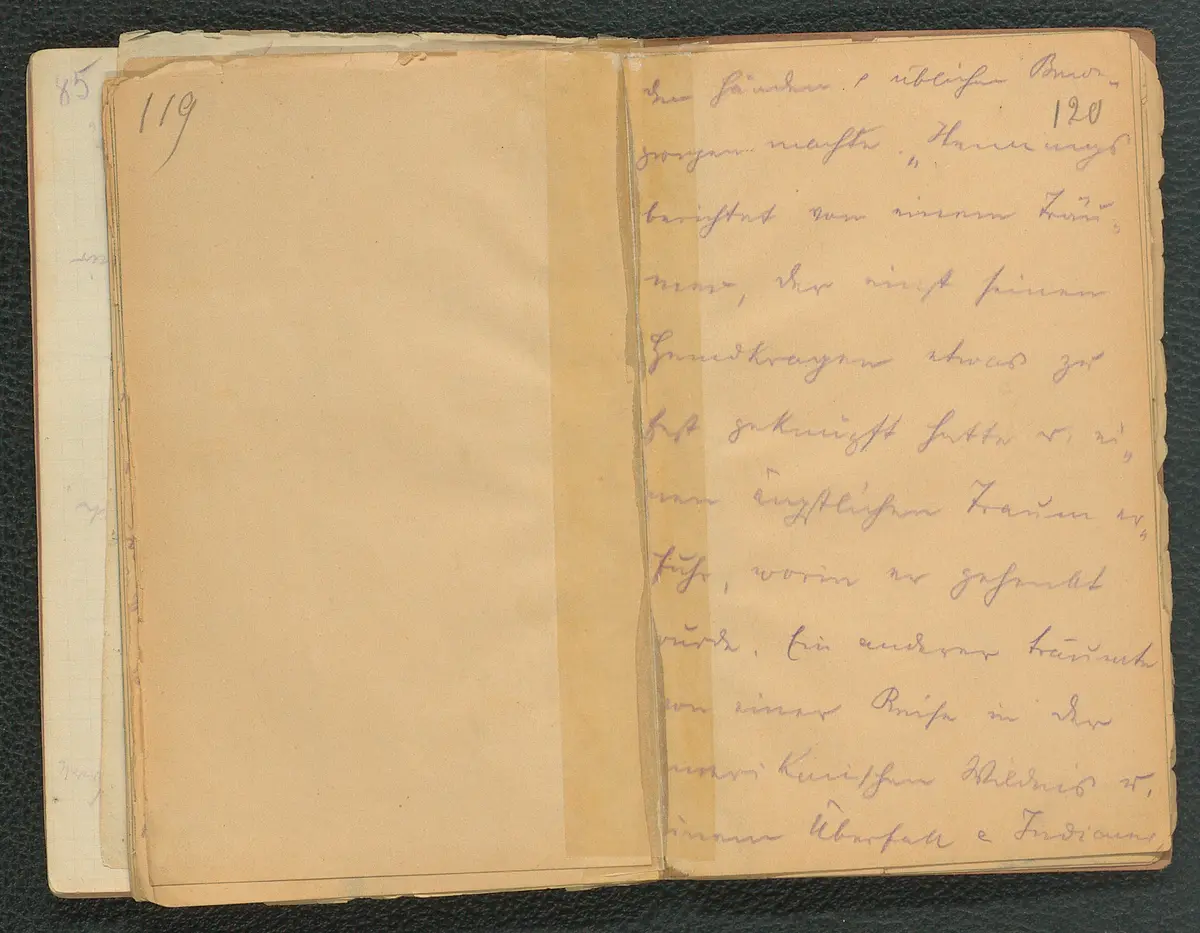 85
119
120
den Händen d üblichen Bewe-
gungen machte. „Hennings
berichtet von einem Träu-
mer, der einst seinen
Hemdkragen etwas zu
fest geknüpft hatte u. ei-
nen ängstlichen Traum er-
fuhr, worin er gehenkt
wurde. Ein anderer träumte
von einer Reise in der
amerikanischen Wildnis u.
einem Überfall e Indianer